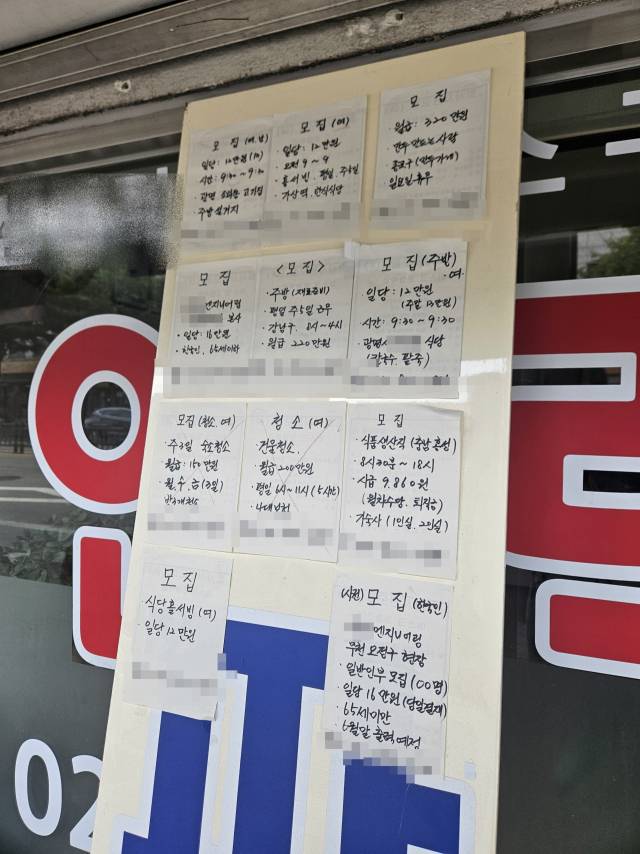 모집 (여)
일당: 12만원
시간: 9:30~9:30
주방 설거지
모집 (여)
일당: 12만원
오전 9~9
홀서빙, 평일, 주5일
가산역, 한식식당
모집
월급: 320만원
만두 만드는 사람
종로구 (만두가게)
일요일 휴무
모집
엔지니어링
본사
일당: 16만원
한국인, 65세이하
<모집>
주방 (재료준비)
평일 주5일 근무
강남구, 8시~4시
월급 220만원
모집 (주방)
여
일당: 12만원
(주말 13만원)
시간: 9:30~9:30
광명시 식당
(칼국수, 팥죽)
모집 (청소, 여)
주3일 숙소청소
월급: 150만원
월, 수, 금 (3일)
청소 (여)
건물청소,
월급 200만원
평일 6시~11시 (5시간)
4대보험
모집
식품생산직 (충남 홍성)
8시30분~18시
시급 9,860원
(월차수당, 퇴직금)
기숙사 (1인실, 2인실)
모집
식당홀서빙 (여)
일당 12만원
모집 (한국인)
엔지니어링
부천 오정구 현장
일반인부 모집 (00명)
일당 16만원 (당일결제)
65세미만
6월말 출력예정
02